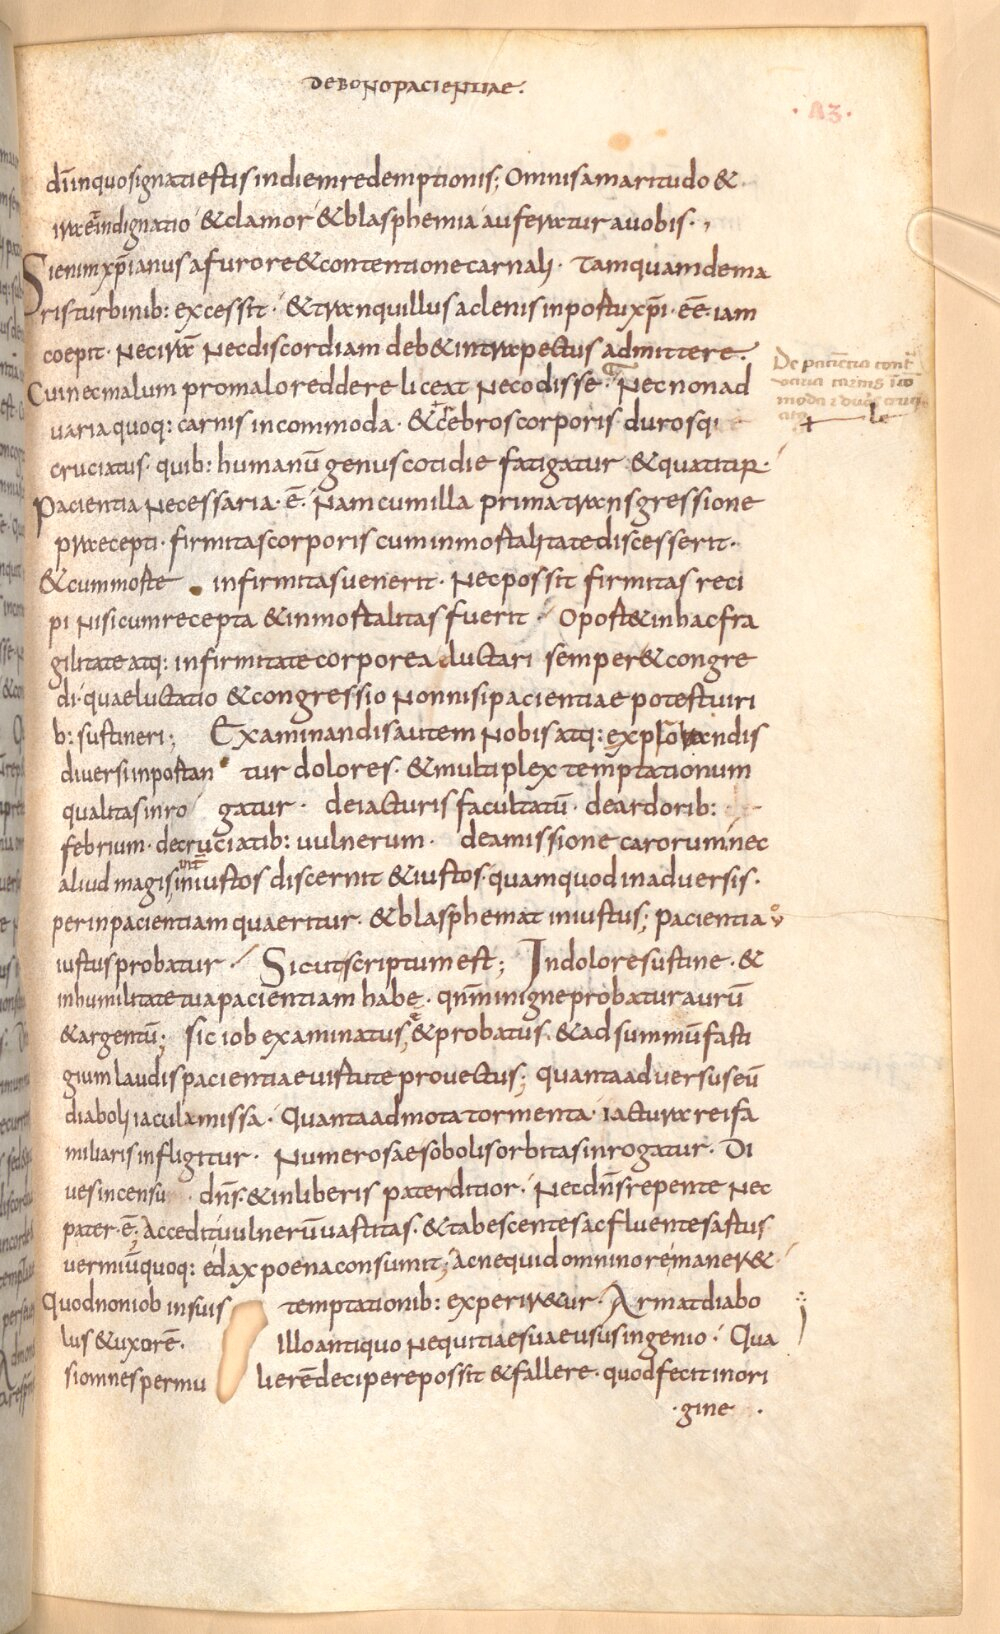 DE BONO PACIENTIAE.
. A3.
dī in quo signati estis in diem redemptionis; Omnis amaritudo &
ira & indignatio & clamor & blasphemia auferatur a vobis.,
Si enim xp̄ianus a furore & contentione carnali. Tamquam de ma
ris turbinib: excessit. & tranquillus ac lenis in portu xp̄i. ēē. iam
coepit. Nec irā Nec discordiam deb& intra pectus admittere.
Cui nec malum pro malo reddere liceat Nec odisse. Nec non ad
varia quoq: carnis incommoda. & crebros corporis durosq;
cruciatus. quib: humanū genus cotidie fatigatur & quatitur.
De pacientia cont
varia carnis īco
moda & duos cruci
atus
Pacientia Necessaria. ē. Nam cum illa prima transgressione
praecepti. firmitas corporis cum inmortalitate discesserit.
& cum morte infirmitas venerit. Nec possit firmitas reci
pi Nisi cum recepta & inmortalitas fuerit. Oport& in hac fra
gilitate atq: infirmitate corporea luctari semper & congre
di. quae luctatio & congressio Non nisi pacientiae potest viri
b: sustineri; Examinandis autem Nobis atq: explorandis
diversi inportantur dolores. & multiplex temptationum
qualitas inrogatur. de iacturis facultatū. de ardorib:
febrium. de cruciatib: vulnerum. de amissione carorum. nec
aliud magis int̄ iniustos discernit & iustos. quam quod in adversis.
per inpacientiam quaeritur. & blasphemat iniustus; pacientia
iustus probatur. Sicut scriptum est; In dolore sustine. &
in humilitate tua pacientiam habe. qnm̄ in igne probatur aurū
& argentū; sic iob examinatus, & probatus. & ad summū fasti
gium laudis pacientiae virtute provectus; quanta adversus eū
diaboli iacula missa. Quanta admota tormenta. iactura rei fa
miliaris infligitur. Numerosae sobolis orbitas inrogatur. Di
ves in censu dn̄s. & in liberis pater ditior. Nec dn̄s repente Nec
pater. ē; Accedit vulnerū vastitas. & tabescentes ac fluentes artus
vermiū quoq: edax poena consumit; Ac ne quid omnino remaner&
Quod non iob in suis temptationib: experir&ur. Armat diabo
lus & uxorē. Illo antiquo Nequitiae suae usus ingenio. Qua
si omnes per mulierē decipere possit & fallere. quod fecit in ori
.gine .